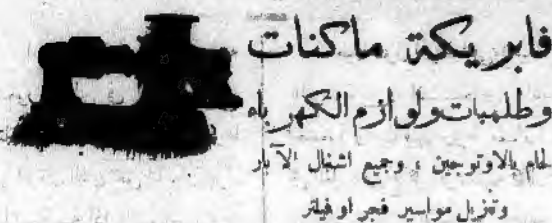 فابريكة ماكنات
وطلمبات ولوازم الكهرباء
لحام بالاوتوجين ، وجميع اشغال الآبار
وتنزيل مواسير فجر او فيلتر